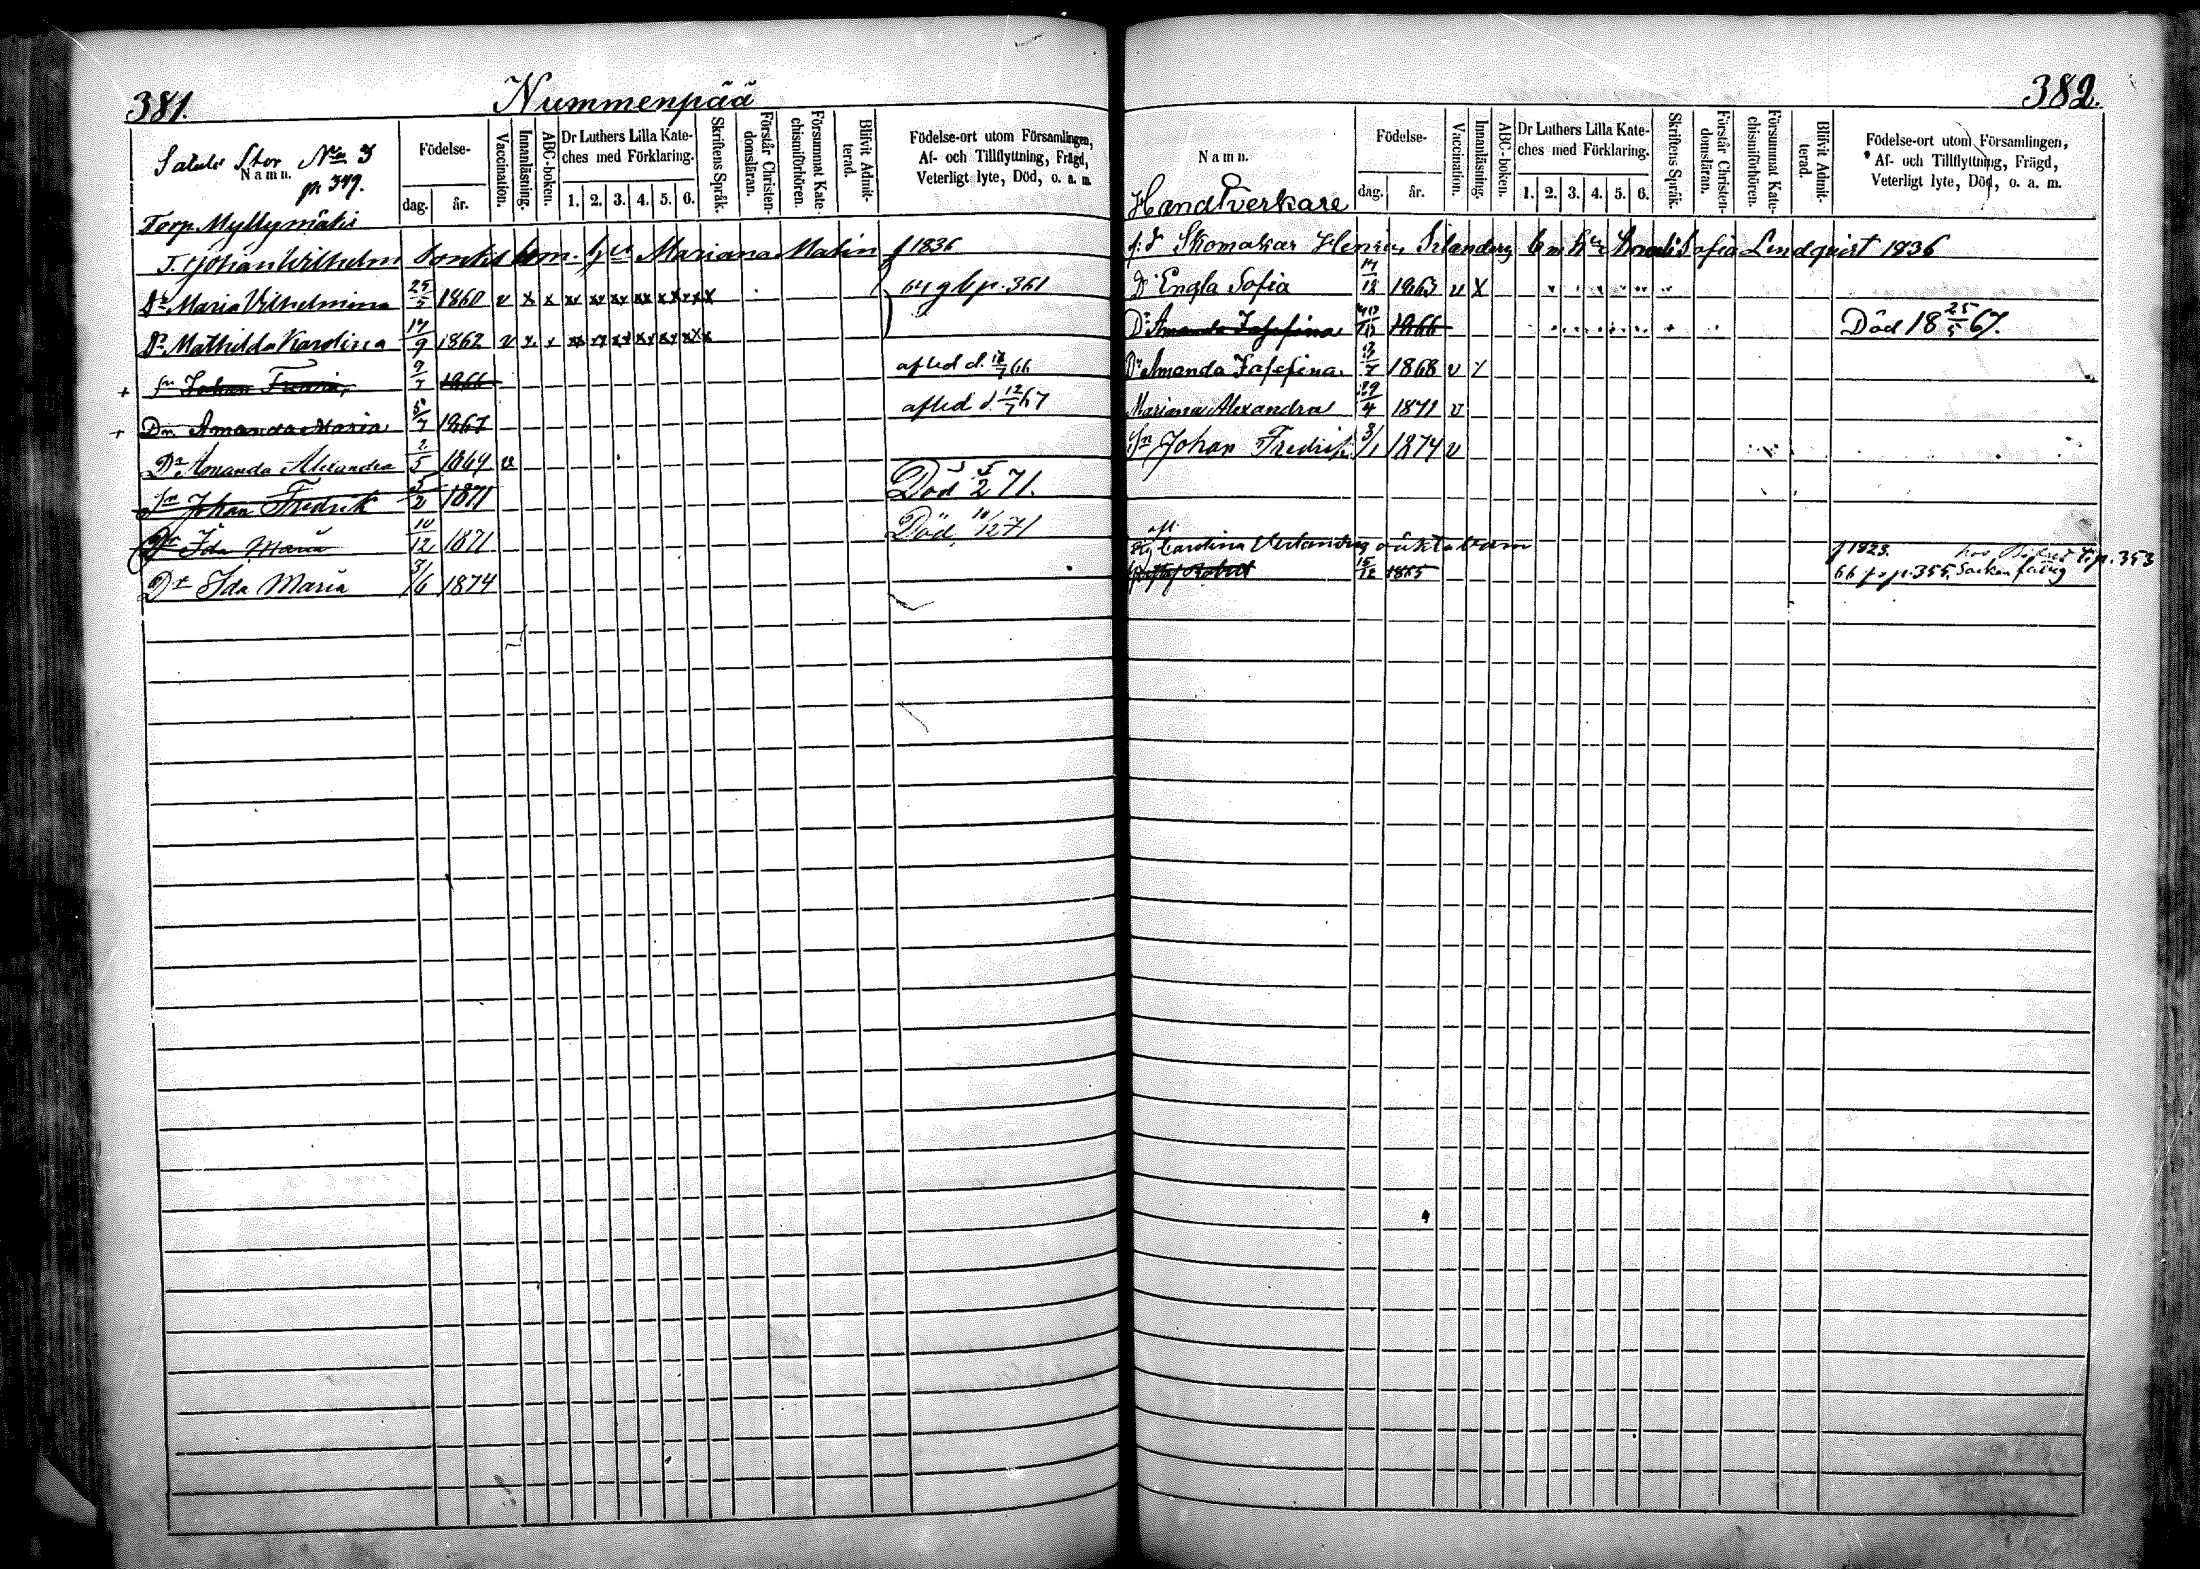 381.
Nummenpää
Stor No 3
Namn.
p. 349.
Födelse-
dag.
år.
Vaccination.
Innanläsning.
ABC-boken.
Dr Luthers Lilla Kate-
ches med Förklaring.
1. 2. 3. 4. 5. 6.
Skriftens Språk.
Förstår Christen-
domsläran.
Försummat Kate-
chismiförhören.
Blivit Admit-
terad.
Födelse-ort utom Församlingen,
Af- och Tillflyttning, Frägd,
Veterligt lyte, Död, o. a. m.
Torp Myllymäki
T. Johan Wilhelm m. Mariana Malin f 1836
Dr Maria Vilhelmina 25/5 1860 v x x 64 p. 361
Dr Mathilda Karolina 17/9 1862 v x x
+ Sn Johan 9/7 1866 afled d. 18/7 66
+ Dr Amanda Maria 5/7 1867 afled d. 12/7 67
Dr Amanda Alexandra 2/5 1869 v
Sn Johan Fredrik 5/2 1871 Död 5/2 71.
Dr Ida Maria 10/12 1871 Död 10/12 71
Dr Ida Maria 3/6 1874
382.
Namn.
Födelse-
dag.
år.
Vaccination.
Innanläsning.
ABC-boken.
Dr Luthers Lilla Kate-
ches med Förklaring.
1. 2. 3. 4. 5. 6.
Skriftens Språk.
Förstår Christen-
domsläran.
Försummat Kate-
chismiförhören.
Blivit Admit-
terad.
Födelse-ort utom Församlingen,
Af- och Tillflyttning, Frägd,
Veterligt lyte, Död, o. a. m.
Handtverkare
f. d Skomakar Sofia Lindqvist 1836
Dr Engla Sofia 17/12 1863 v x
Dr Amanda Josefina 1866 Död 18 25/5 67.
Dr Amanda Josefina 13/7 1868 v
Mariana Alexandra 29/4 1871 v
Sn Johan Fredrik 3/1 1874 v
Carolina f 1823. p. 353
Robert 15/12 1865 66 p. 355